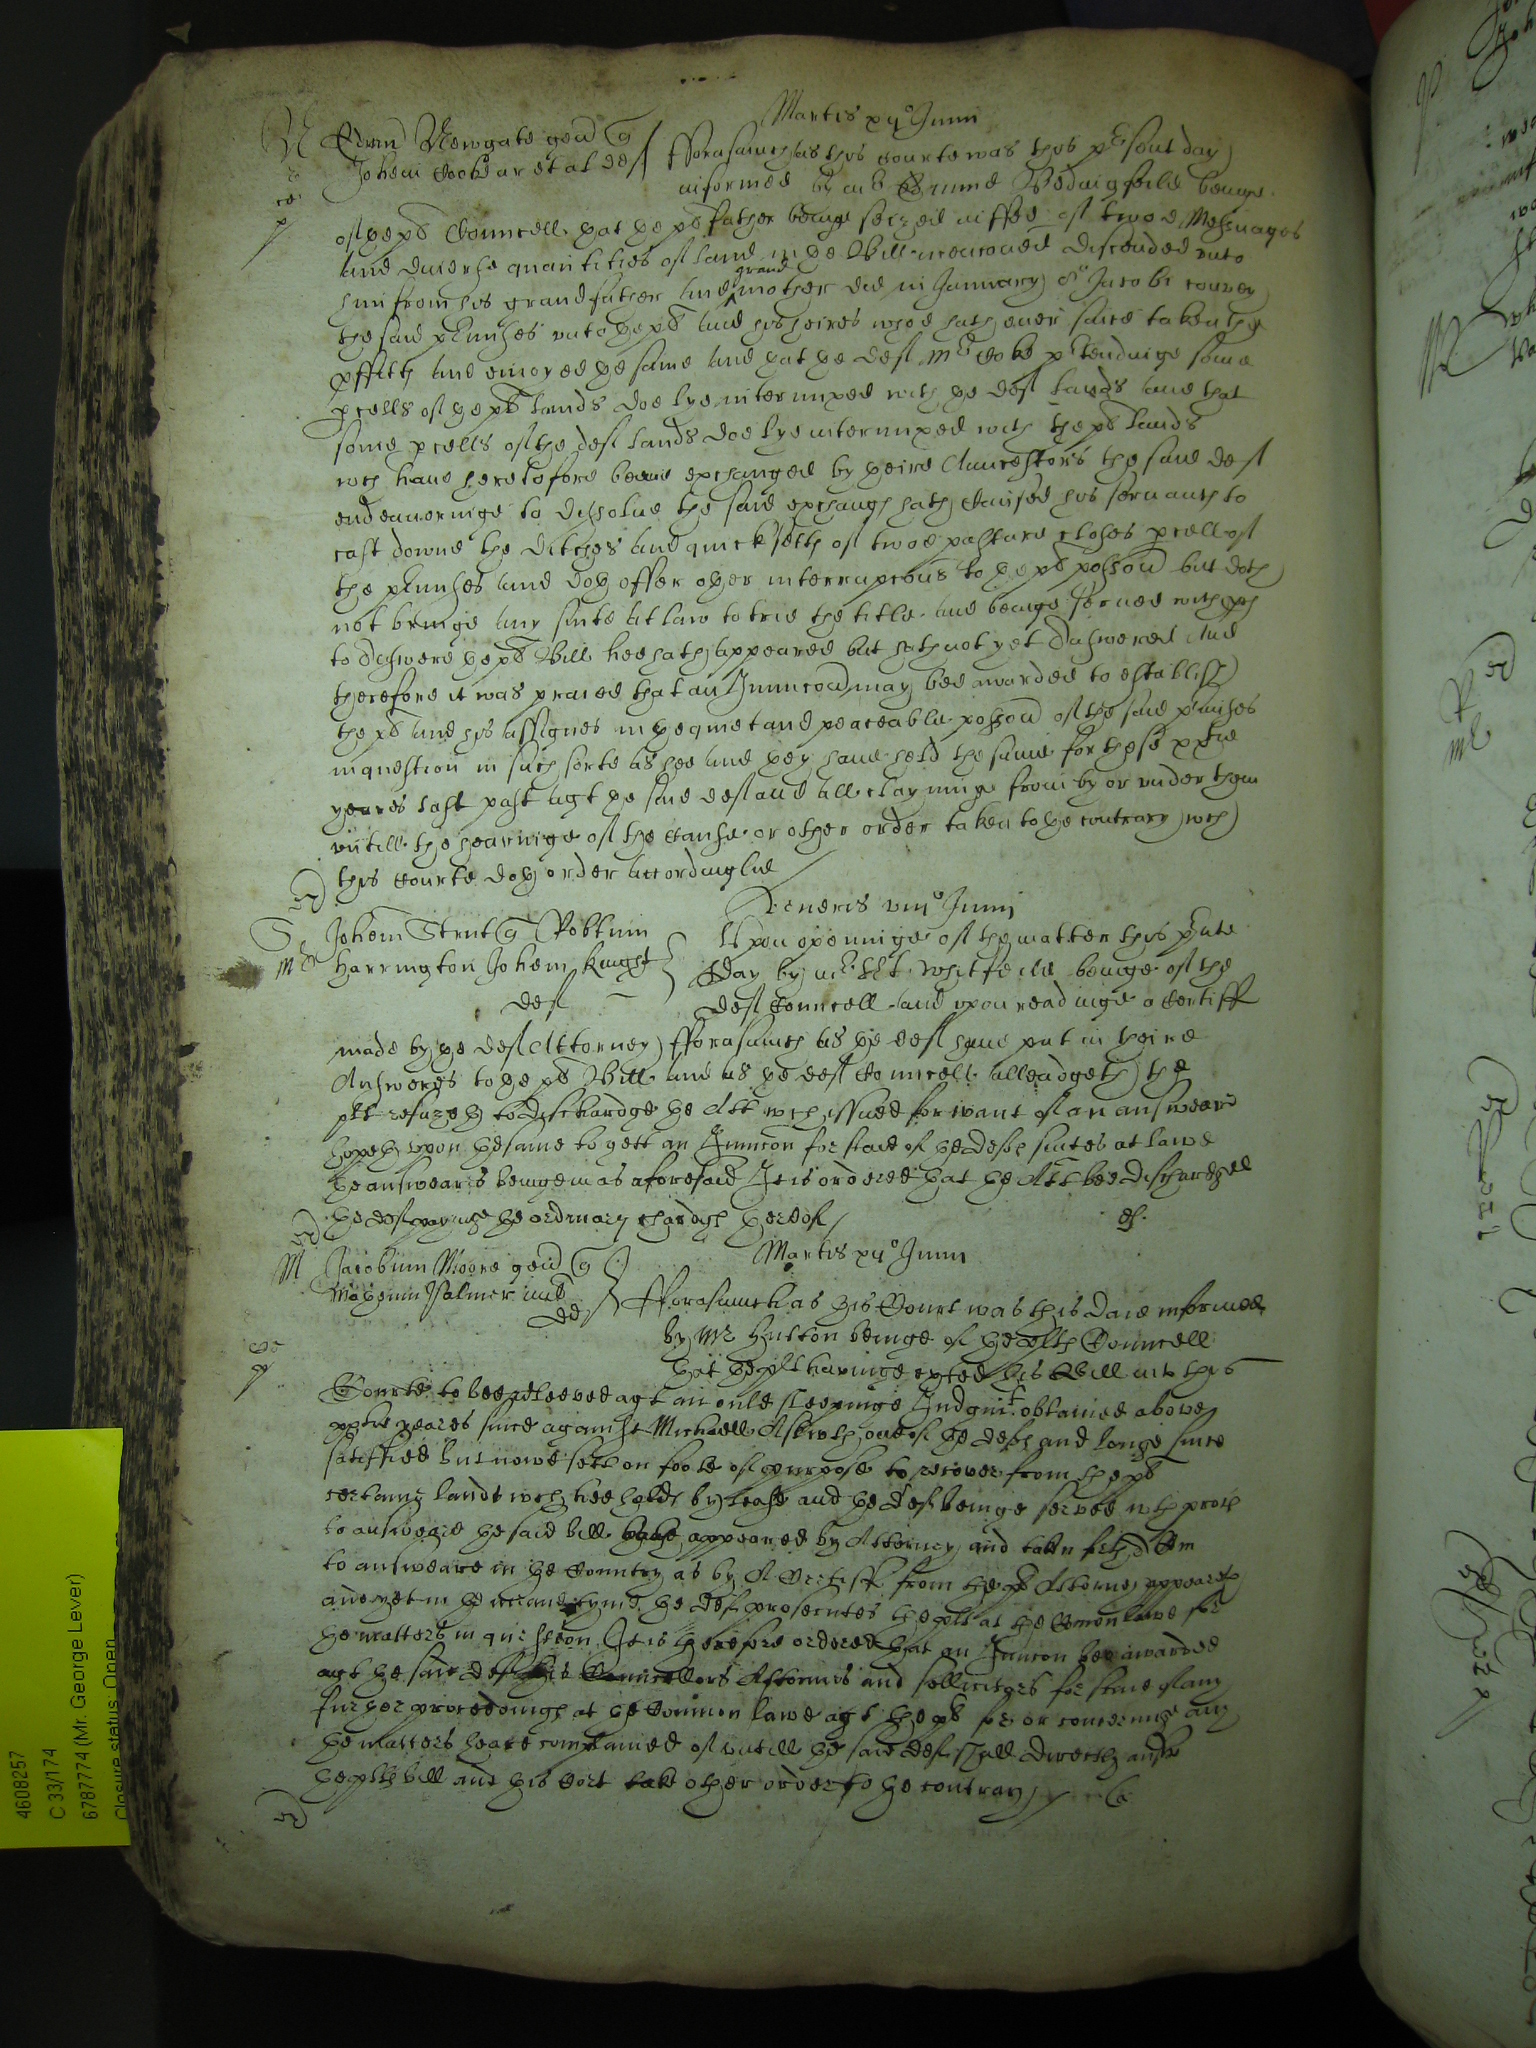 Martis xii° Junii
N Edrũ Newgate gen q
Johem Cooke ar et al def
fforasmuch as this Courte was this p̃sent day
informed by mr Edmund Bedingfeild beinge
of þe plts Councell þat þe plts father beinge seized in ffee of twoe Messuages
and diuerse quantities of land in þe Bill menconed discended vnto
him from his grandfather and grand mother did in January 6° Jacobi convey
the said p̃misses vnto þe plt and his heires whoe hath ever since taken the
pffitts and enioyed þe same and þat þe def Mr Coke p̃tendinge some
pcells of þe plts lands doe lye intermixed with þe def lands and that
some pcells of the def lands doe lye intermixed with the plts lands
wch haue heretofore beene exchanged by þeire Auncestors the said def
endeavoringe to dissolue the said exchange hath caused his servants to
cast downe the ditches and quicksetts of twoe pasture closes pcell of
the p̃misses and doþ offer oþer interrupcons to þe plts possion but doth
not bringe any suite at law to trie the title and beinge served with pces
to Answere þe plts Bill hee hath appeared but hath not yet Answered And
therefore it was praied that an Iniunccon may bee awarded to establish
the plt and his assignes in þe quiet and peaceable possion of the said p̃misses
in question in such sorte as hee and þey haue held the same for these xxtie
yeares last past agt þe said def and all clayminge from by or vnder them
vntill the hearinge of the cause or other order taken to þe contrary wch
this Courte doþ order accordinglie
Veneris viii° Junii
S Johem Strut q Robtum
Harrington Johem Knight
def
Vpon openninge of the matter this p̃nte
day by mr Whitfeild beinge of the
def Councell and vpon readinge a Certiff
made by þe def Attorney fforasmuch as þe def haue put in þeire
Answeres to þe plts Bill and as þe def Councell alleadgeth the
plt refuzeþ to dischardge þe Att wch issued for want of an answeare
hopeþ vpon þe same to gett an Iniuncon for staie of þe defts suites at lawe
þe answeares beinge in as aforesaid It is ordered þat þe Att bee dischardged
þe def payinge þe ordinary chardgs þereof
Martis xii° Junii
M Jacobum Moore gen q
Matheum Palmer mil
def
fforasmuch as þis Court was this daie informed
by Mr Hutton beinge of þe plts Councell
þat þe plt havinge exhted his Bill into this
Courte to bee releeved agt an ould sleepinge Iudgmt obtained above
xxtie yeares since against Michaell Askwth one of þe defts and longe since
satisfied but nowe sett on foote of purpose to recover from the plt
certaine lands wch hee holds by lease and þe def beinge served wth proces
to answeare þe said bill have appeared by Attorney and taken forth a Com
to answeare in þe Country as by a Certiff from the plts Attorney appeares
and yet in þe meane tyme þe def prosecutes the plt at þe Comon lawe for
þe matters in question It is therefore ordered þat an Iniuncon bee awarded
agt þe said def his Councellors Attornies and sollicitors for staie of any
further proceedings at þe Common lawe agt the plt for or concerninge any
þe matters heare complained of vntill þe said def shall directly answ
þe plts bill and þis Cort take other order to þe contrary
4608257
C 33/174
6787774 (Mr. George Lever)
Closure status: Open